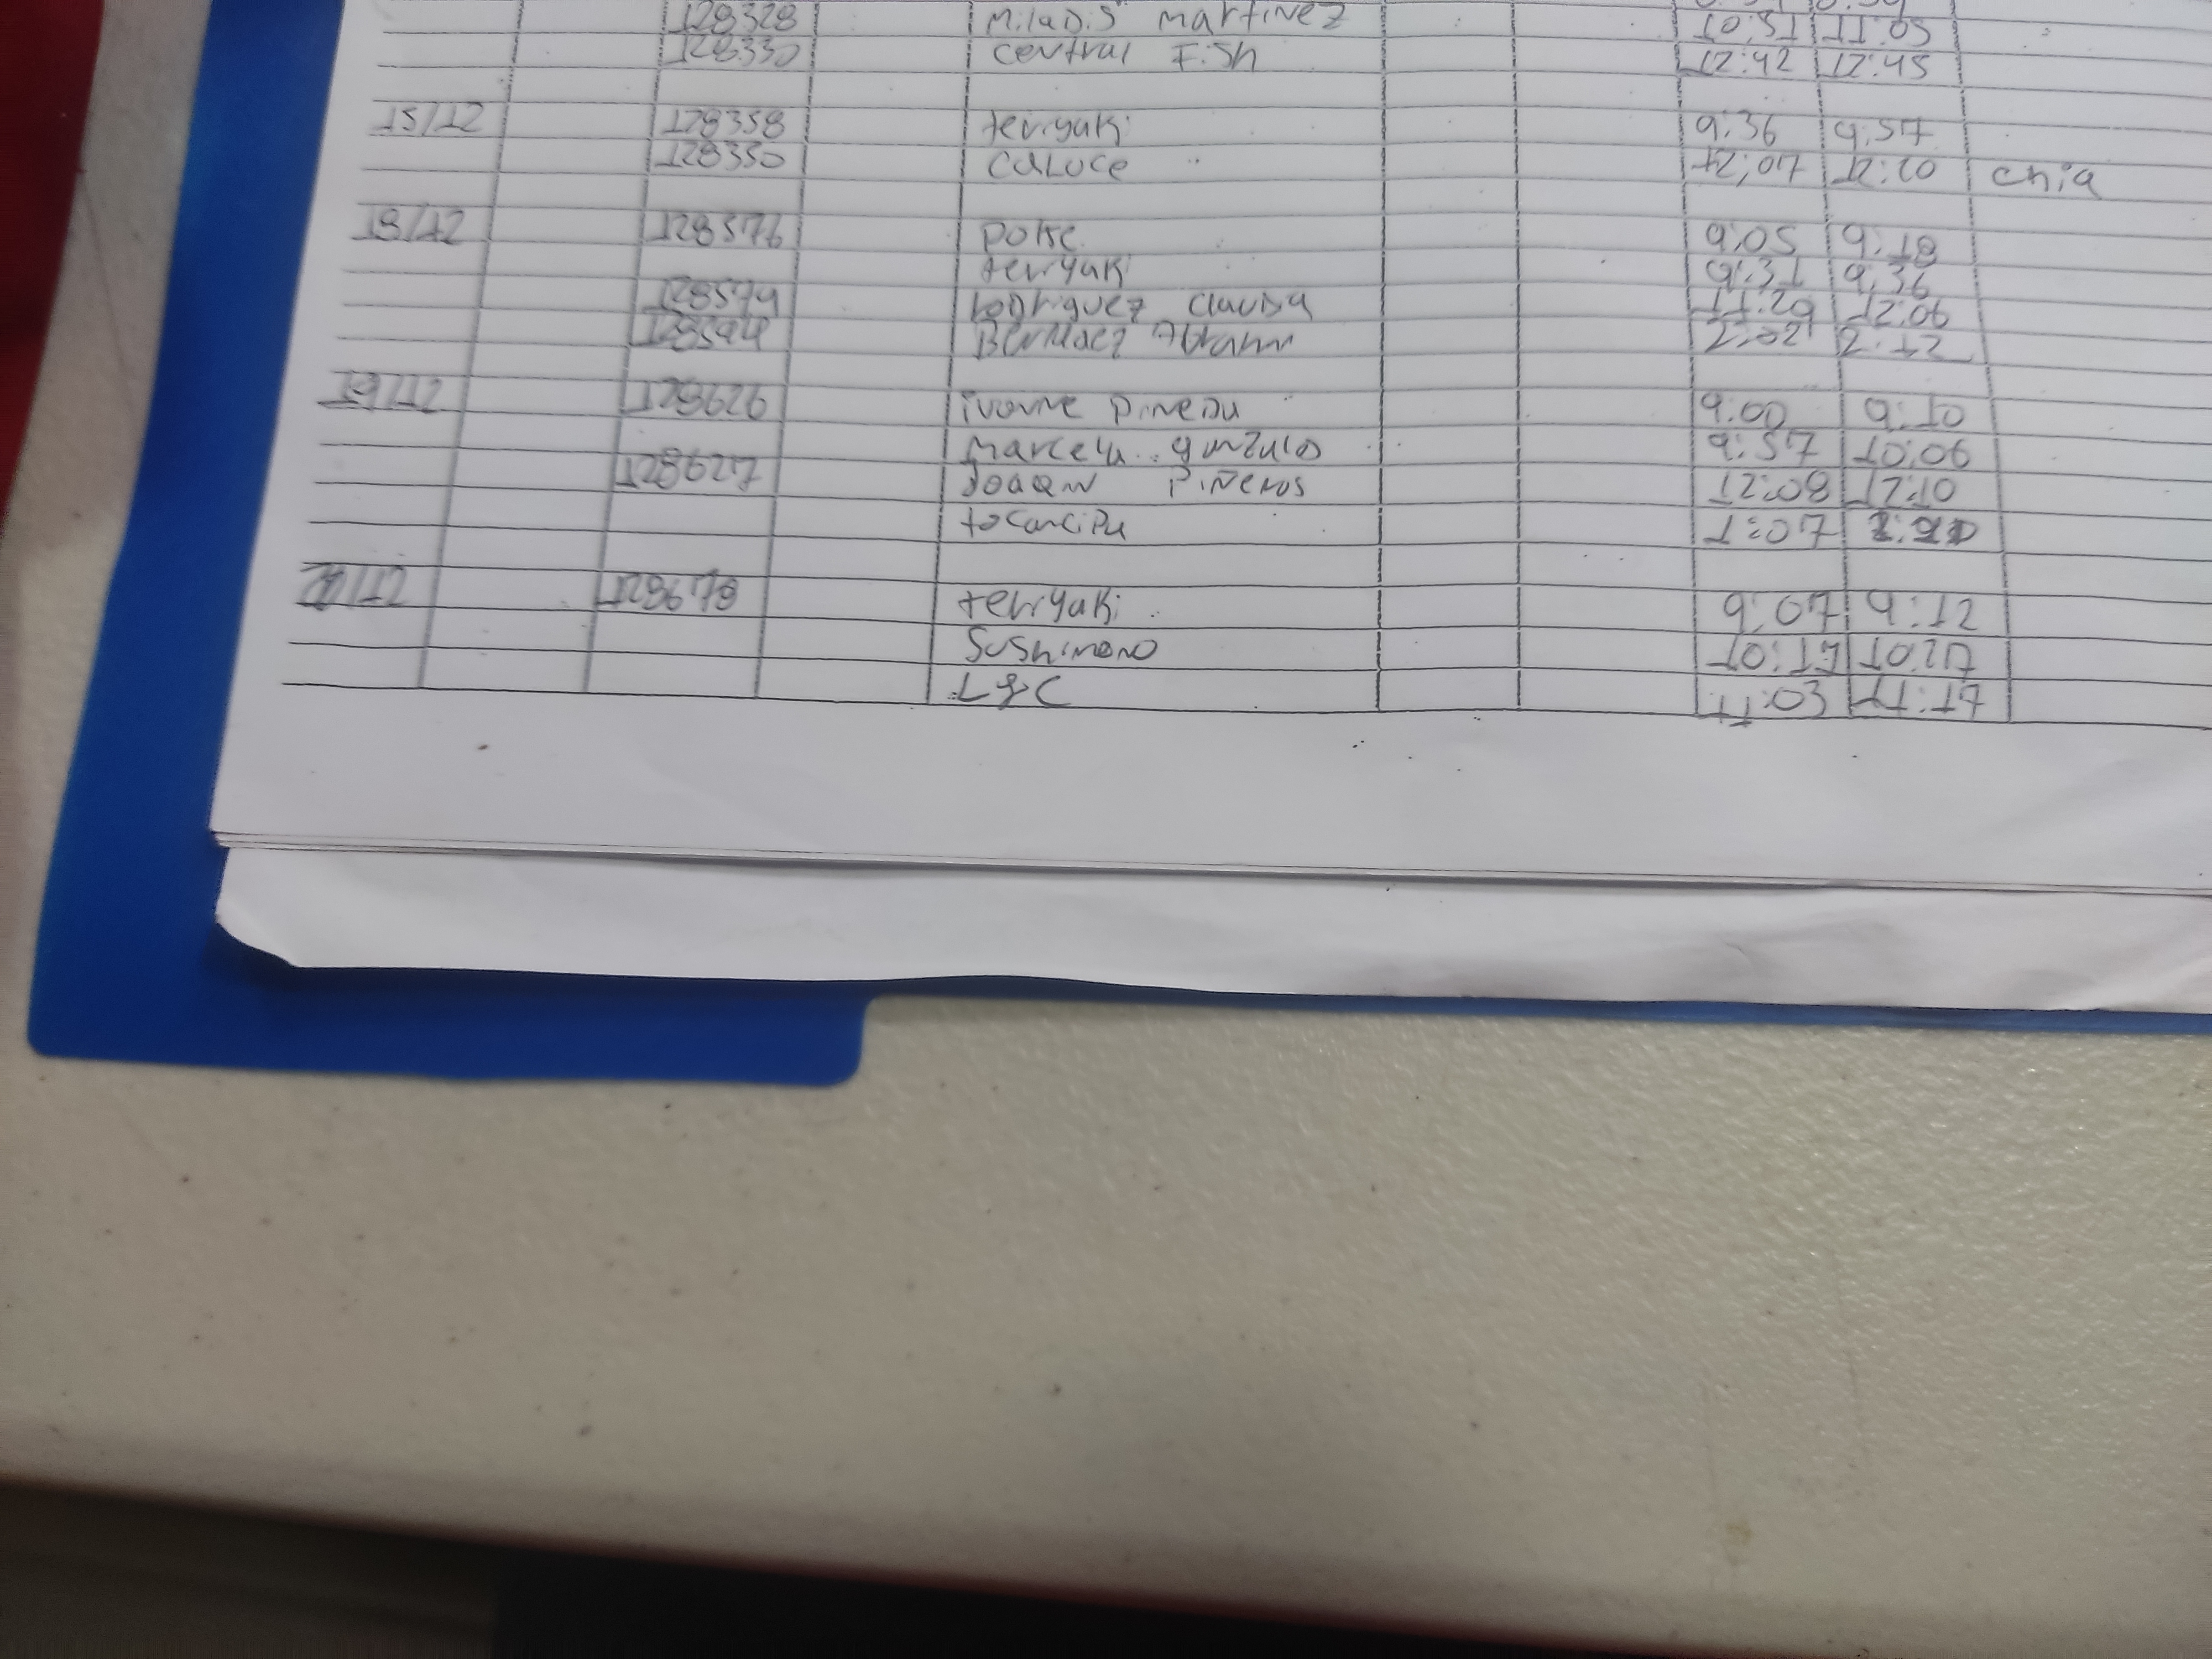 128328 Miladis martinez 10:51 11:05
128330 central Fish 12:42 12:45
15/12 128358 teriyaki 9:36 9:57
128350 Caluce 12:07 12:20 chia
18/12 128576 poke 9:05 9:18
teriyaki 9:31 9:36
128579 Rodriguez Claudia 11:29 12:06
2:02 2:12
19/12 128626 ivonne pineda 9:00 9:10
marcela gonzalez 9:57 10:06
128627 Joaqin Piñeros 12:08 12:10
tocancipa 1:07
128678 teriyaki 9:07 9:12
Sushimono 10:17 10:27
L&C 11:03 11:17